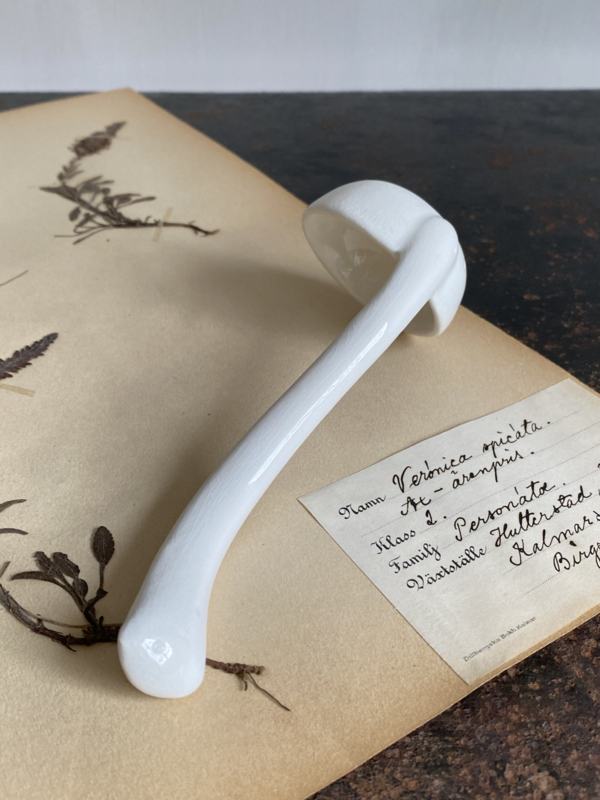 Namn Verónica spicáta.
Ax-ärenpris.
Klass 2.
Familj Personátæ.
Växtställe Hulterstad
Kalmar
Birg
Dillbergska Bokh Kalmar